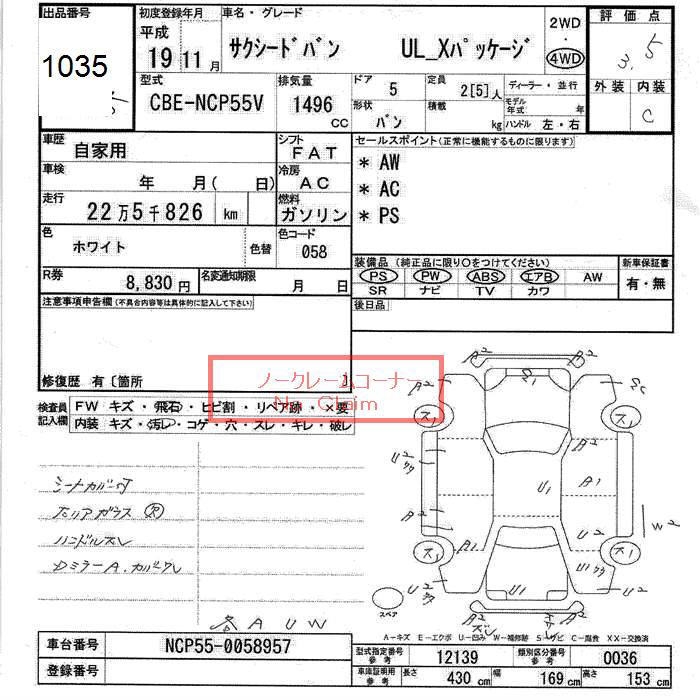 出品番号 初度登録年月 車名・グレード 2WD 評価点
1035 平成 19 11 月 サクシードバン UL_Xパッケージ ・ 4WD 3.5
型式 排気量 ドア 5 定員 2[5]人 ディーラー・並行 外装 内装
CBE-NCP55V 1496 CC 形状 バン 積載 kg モデル年式 年 C
ハンドル 左・右
車歴 自家用 シフト FAT セールスポイント(正常に機能するものに限ります)
車検 年 月( 日) 冷房 AC * AW
走行 22万5千826 km 燃料 ガソリン * AC
* PS
色 ホワイト 色替 色コード 058
装備品(純正品に限り○をつけてください) 新車保証書
R券 8,830円 名変通知期限 月 日 PS PW ABS エアB AW 有・無
SR ナビ TV カワ
注意事項申告欄(不具合内容等は具体的に記入して下さい) 後日品
修復歴 有〔箇所 〕
ノークレームコーナー
No Claim
検査員記入欄 FW キズ・飛石・ヒビ割・リペア跡・×要
内装 キズ・汚レ・コゲ・穴・スレ・キレ・破レ
A2 A2
A2 S1 SC
ス1 ス1
U2 A1
U1
A2 U2 W2
ス1 A1 U1 ス1
U2 U1 U2
シートカバー付
ハンドルスレ
DミラーA.カバーワレ
スペア
各 A U W
A−キズ E−エクボ U−凹み W−補修跡 S−サビ C−腐食 XX−交換済
車台番号 NCP55-0058957 型式指定番号 参考 12139 類別区分番号 参考 0036
登録番号 車庫証明用 参考 長さ 430 cm 幅 169 cm 高さ 153 cm